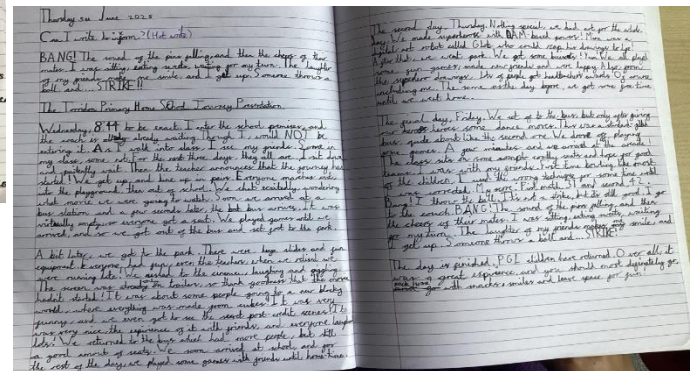 Thursday 5th June 2025
Can I write to inform? (Hot write)
BANG! The sound of the pins falling, and then the cheers of their
mates. I was sitting, eating sweets, waiting for my turn. The laughter
of my friends makes me smile, and I get up. Someone throws a
ball and... STRIKE!!
The Torridon Primary Home School Journey Presentation.
Wednesday, 8:44 to be exact. I enter the school premises and
the coach is already waiting. Though I would NOT be
entering it. As I walk into class, I see my friends. Some in
my class, some not. For the next three days, they all are. I sit down
and excitedly wait. Then the teacher announces that the journey has
started! We get up, and line up in pairs. Everyone marches onto
the playground, then out of school. We chat excitedly, wondering
what movie we were going to watch. Soon, we arrived at a
bus station and a few seconds later, the bus arrives. It was
virtually empty, so everyone got a seat. We played games until we
arrived, and so we got out of the bus and set foot to the park.
A bit later, we got to the park. There were huge slides and fun
equipment. Everyone had fun, even the teachers, when we realised we
were running late! We rushed to the cinema, laughing and
The screen was trailers, so thank goodness that the movie
hadn't started! It was about some people going to a new blocky
world, where everything was made from cubes! It was very
funny, and we even got to see the post credit scenes! It
was very nice, the experience of it with friends, and everyone laughed
lots! We returned to the bus which had more people, but still
a good amount of seats. We soon arrived at school, and for
the rest of the day, we played some games with friends until home-time.
The second day. Thursday. Nothing special, we had art for the whole
day. We made superheroes with BAM-based powers! Mine was a
art robot called Glob who could zap his drawings to life!
After that, we went park. We got some biscuits! Yum! We all played
some more games, made new friends and were happy. Also some
superhero drawings. Lots of people got headteacher's awards. Of course
including me. The same as the day before, we got more free time
until we went home.
The final day, Friday. We set off to the bus, but only after giving
our heroes some dance moves. This was a student-filled
bus, quite about like the second one. We drove off, playing
some games. A few minutes and we arrived at the arcade.
The class sits on some sweets and hope for good
teams. I was with my friends, but I was beating the most
of the children. I used the wrong technique for some time until
I was corrected. My score? First match, 31 and second, 72.
Bang! I throw the ball. It's not a strike, but it's still good. I go
to the couch. BANG! The sound of the pins falling, and then
the cheers of their mates. I was sitting, eating sweets, waiting
for my turn. The laughter of my friends makes my smile, and
I get up. Someone throws a ball and... STRIKE!
The day is finished, PGI children have returned. Over all, it
was a great experience, and you should most definitely go,
with snacks, smiles and leave space for fun!